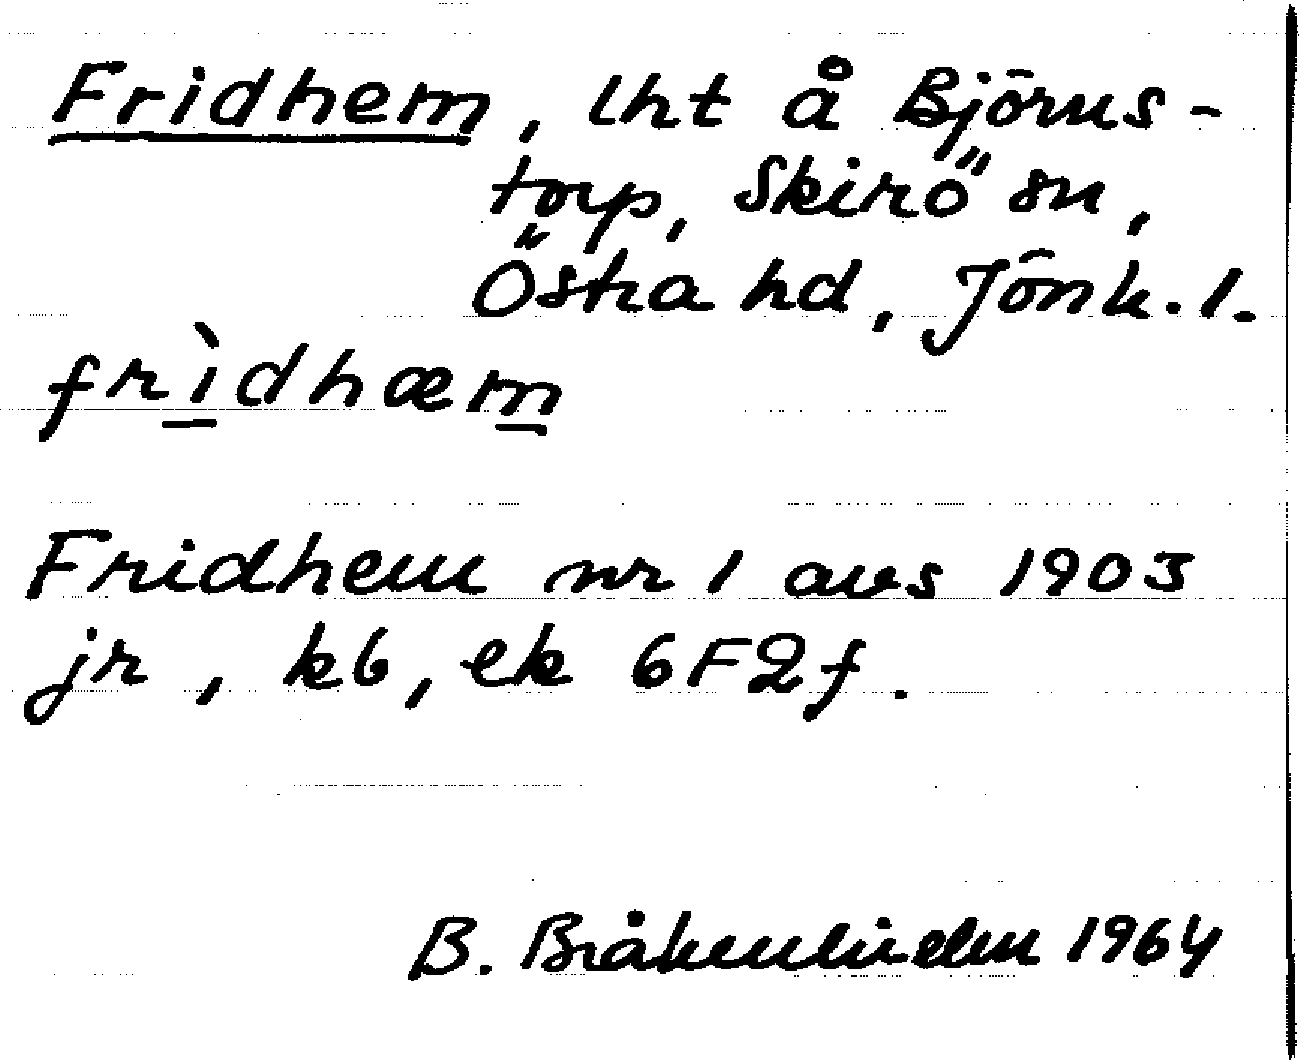 Fridhem, lht å Björns-
torp, Skirö sn,
Östra hd, Jönk. l.
frìdhæm
Fridhem nr 1 avs 1903
jr, kb, ek 6F2f.
B. Bråkenhielm 1964